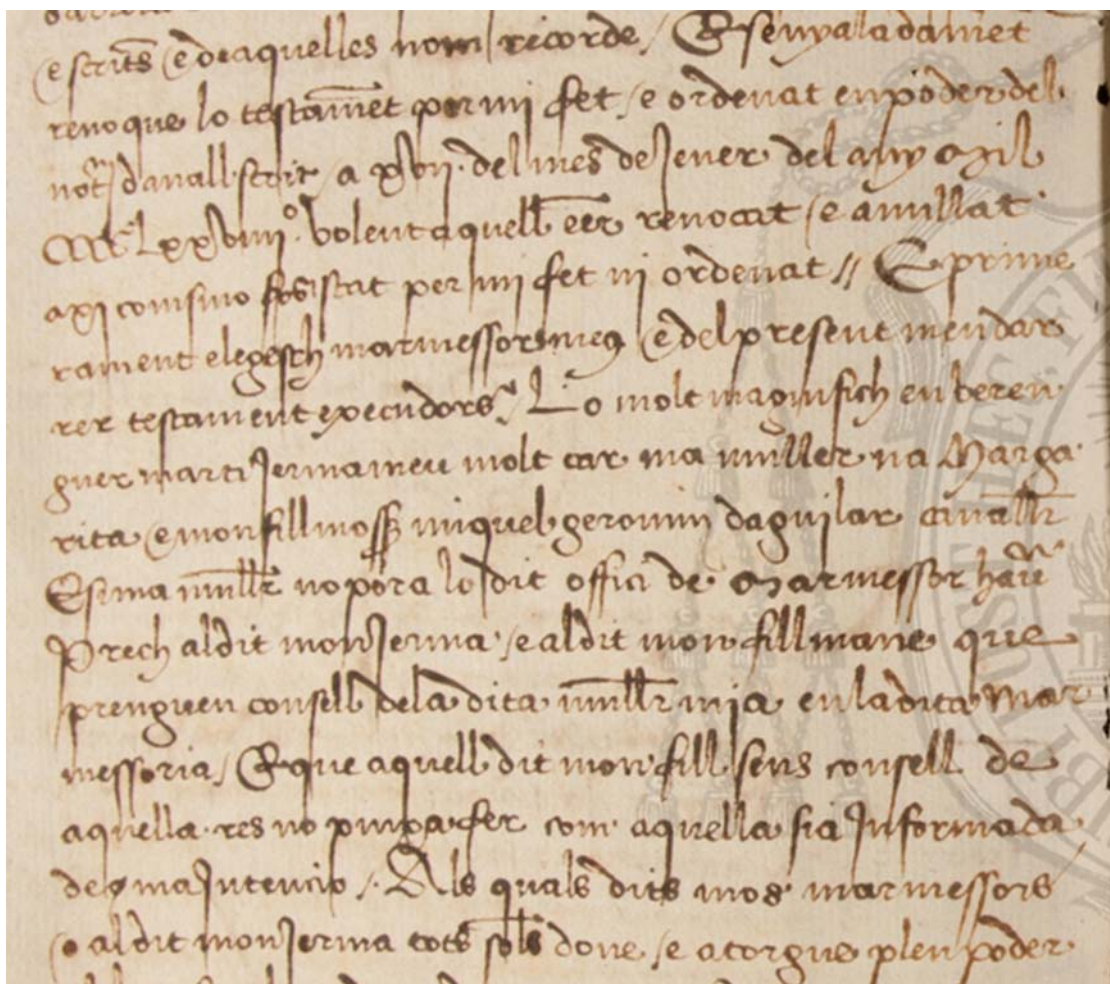 e scrits e de aquelles nom ricorde / E senyaladamet
revoque lo testamet per mi fet / e ordenat en poder del
not davall scrit / a xvii. del mes de Jener del any Mil
CCCC Lxxviiii.º volent aquell eer revocat / e anullat
axi com si no fos stat per mi fet ni ordenat // E prime
rament elegesch marmessors meus / e del present meu dar
rer testament executors / Lo molt magnifich en beren
guer marti Jerma meu molt car ma muller na Marga
rita / e mon fill moss miquel geronim daguilar cavallr
E si ma mullr no pora lo dit offici de Marmessor have
Prech al dit mon Jerma / e al dit mon fill meu que
prenguen consell de la dita mullr mia en la dita Mar
messoria / E que aquell dit mon fill sens consell de
aquella res no puixa fer com aquella sia Informada
de ma Intencio /. Als quals dits mes marmessors
e al dit mon Jerma tots sols done / e atorgue plen poder